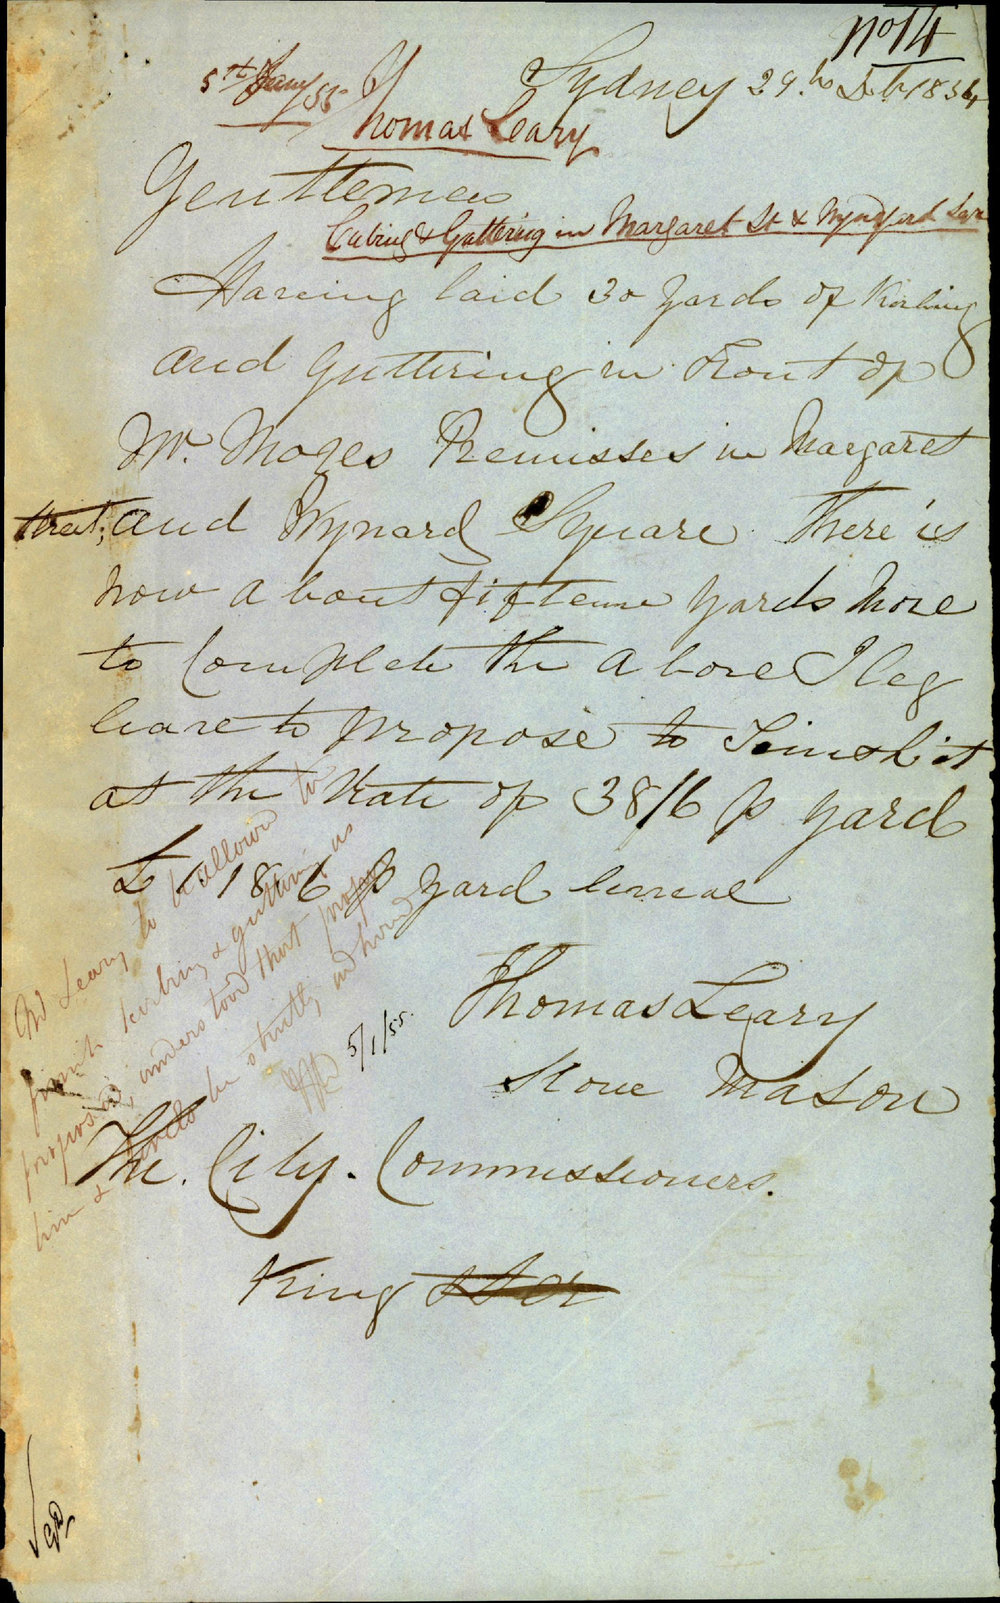 No 14
5th Jany 55
Sydney 29th 1854
Thomas Leary
Gentlemen
Cubing & Guttering in Margaret St & Wynyard Sqre
Haveing laid 30 yards of Kirbing
and guttering in Front of
Mr. Moses Premisses in Margaret
street, and Wynard Square there is
now a bout fifteen yards More
to Complete the a bove I beg
leave to propose to Finish it
at the Rate of 38/6 p yard
£1 18 6 p yard lineal
Thomas Leary
Stone Mason
Mr Leary to be allowed to
finish kerbing & guttering as
proposed, understood that
him & be strictly
5/1/55.
The. City. Commissioners.
King Street